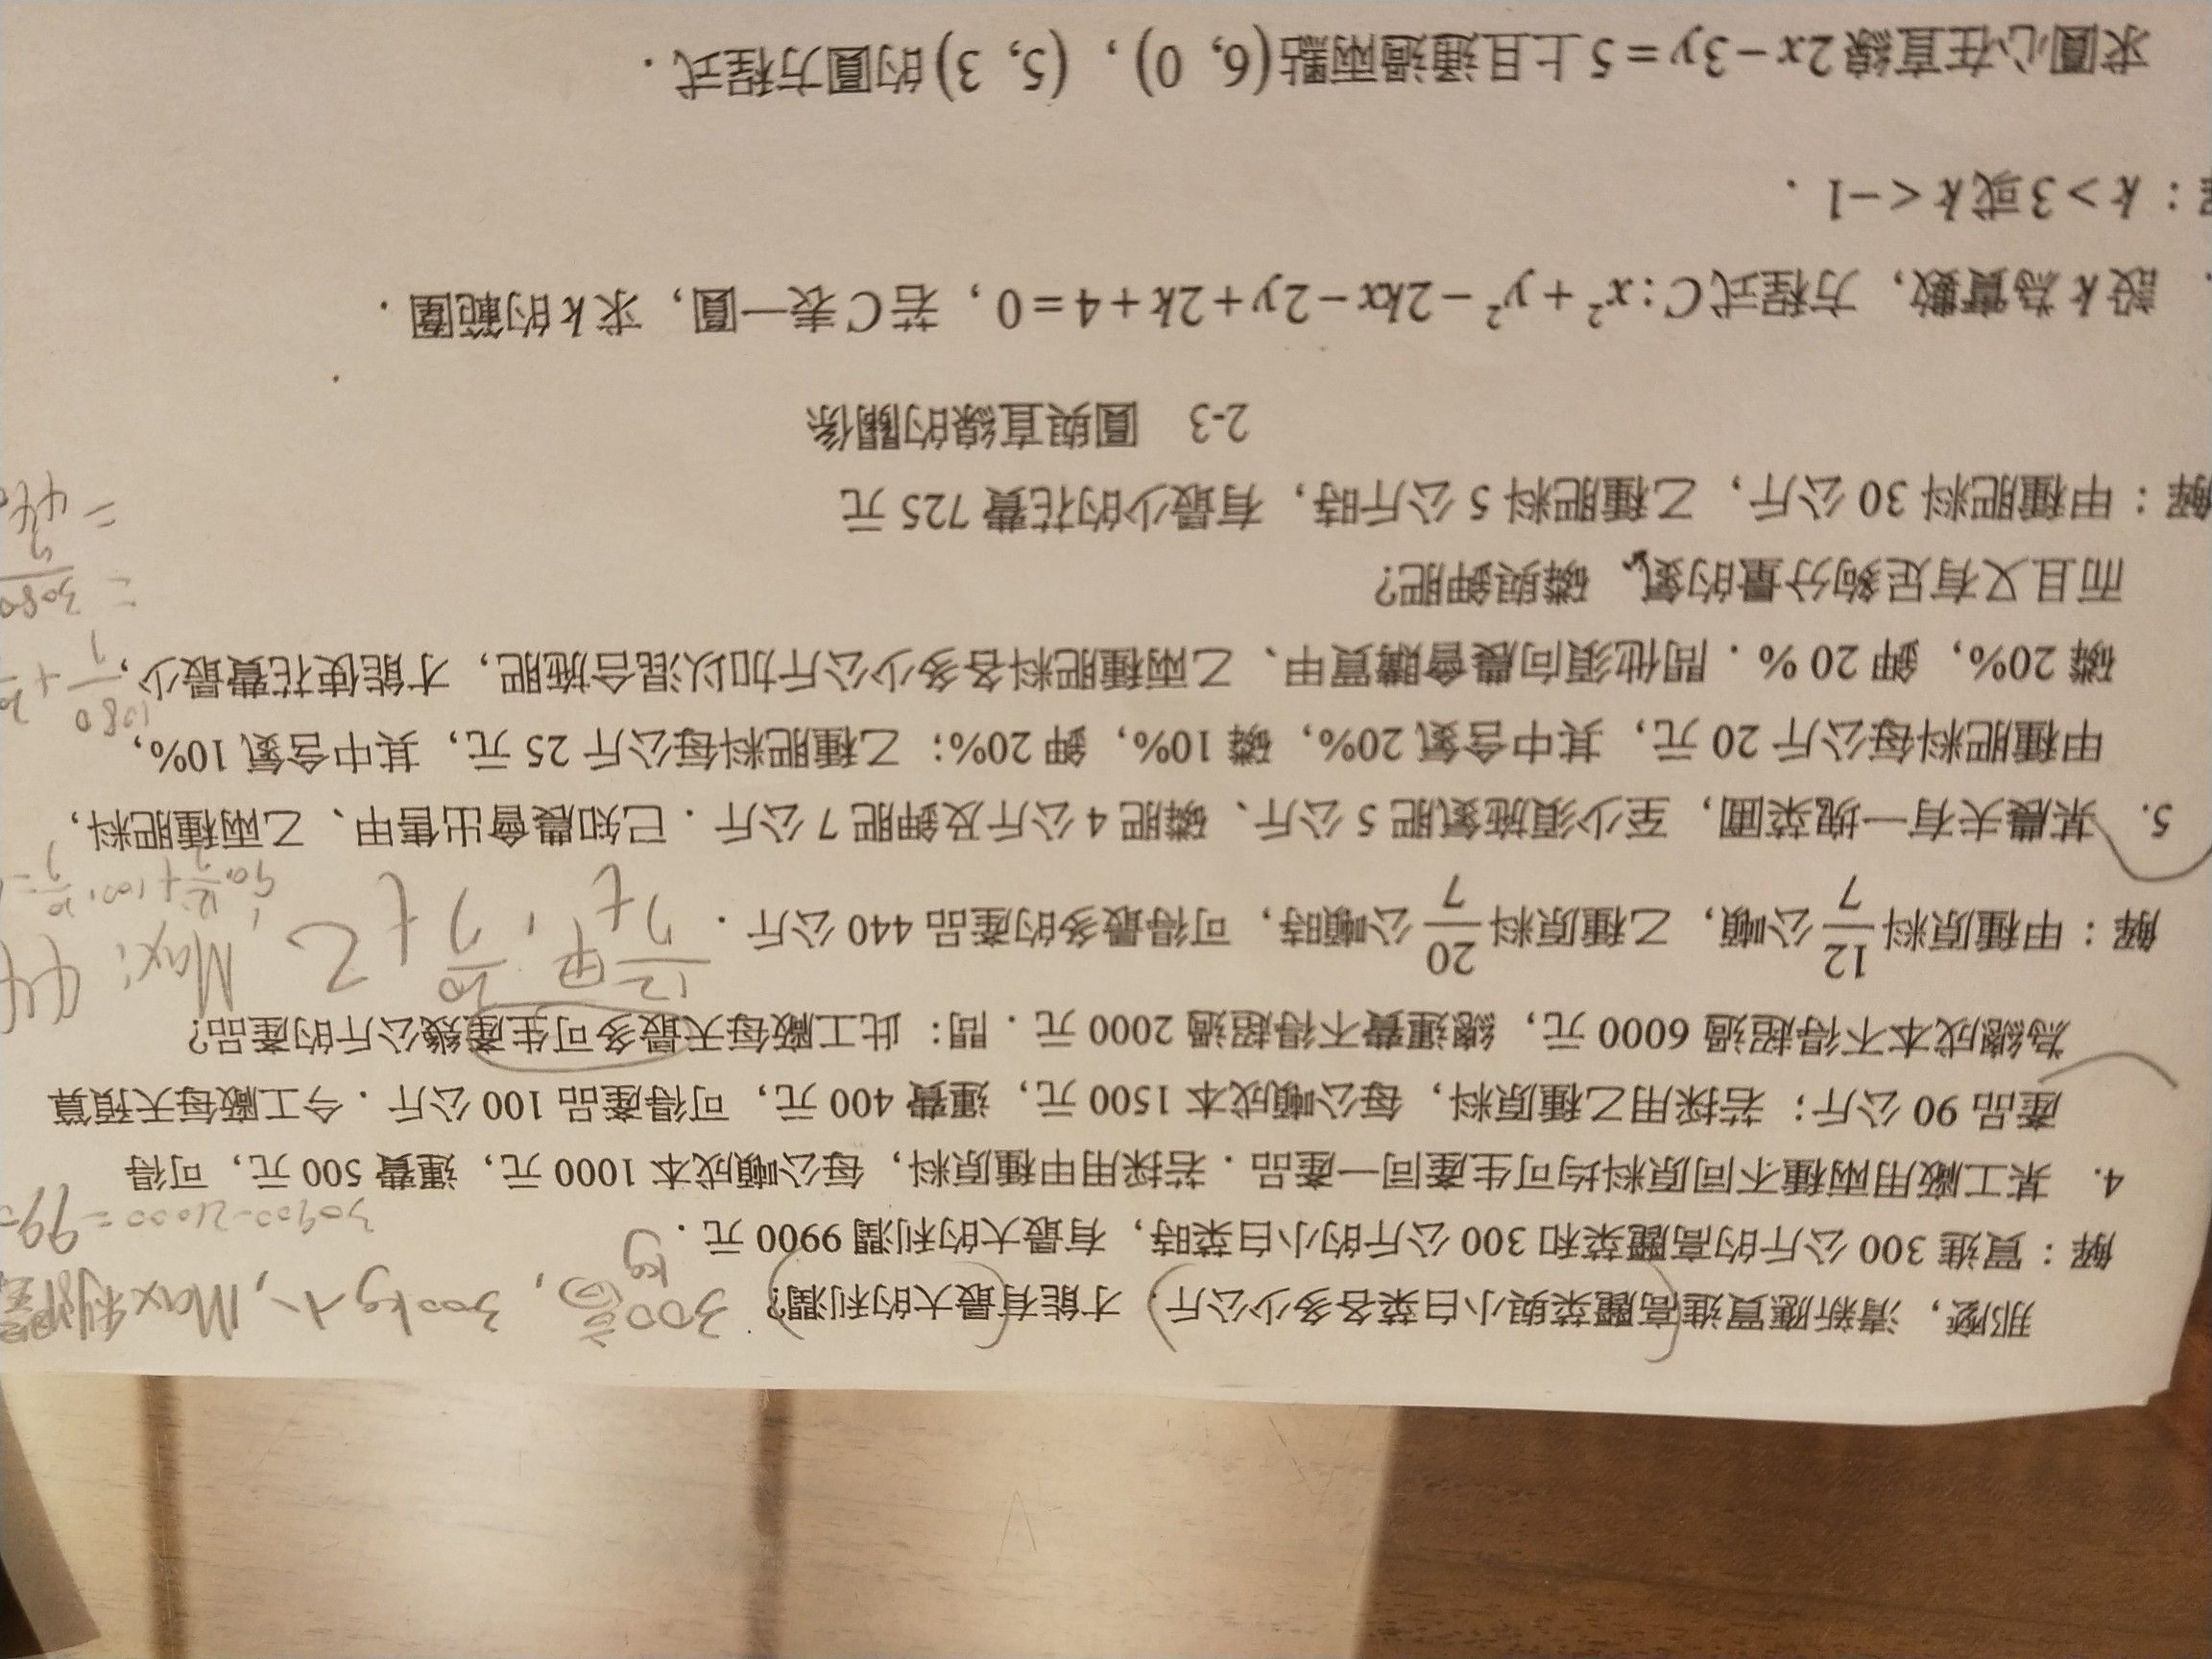 那麼，清新應買進高麗菜與小白菜各多少公斤，才能有最大的利潤? 300高麗, 300kg小, Max利潤
kg
解：買進 300 公斤的高麗菜和 300 公斤的小白菜時，有最大的利潤 9900 元．
30900-21000=990
4. 某工廠用兩種不同原料均可生產同一產品．若採用甲種原料，每公噸成本 1000 元，運費 500 元，可得
產品 90 公斤；若採用乙種原料，每公噸成本 1500 元，運費 400 元，可得產品 100 公斤．今工廠每天預算
為總成本不得超過 6000 元，總運費不得超過 2000 元．問：此工廠每天最多可生產幾公斤的產品?
解：甲種原料12/7公噸，乙種原料20/7公噸時，可得最多的產品 440 公斤．
12/7t甲, 20/7t乙 Max: 44
90·12/7+100·20/7=
5. 某農夫有一塊菜圃，至少須施氮肥 5 公斤、磷肥 4 公斤及鉀肥 7 公斤．已知農會出售甲、乙兩種肥料，
甲種肥料每公斤 20 元，其中含氮 20%，磷 10%，鉀 20%；乙種肥料每公斤 25 元，其中含氮 10%，
1080/7+
磷 20%，鉀 20 %．問他須向農會購買甲、乙兩種肥料各多少公斤加以混合施肥，才能使花費最少，
=3080/7
而且又有足夠分量的氮、磷與鉀肥?
=440
解：甲種肥料 30 公斤，乙種肥料 5 公斤時，有最少的花費 725 元
2-3 圓與直線的關係
設k為實數，方程式C:x²+y²-2kx-2y+2k+4=0，若C表一圓，求k的範圍．
：k>3或k<-1．
求圓心在直線2x-3y=5上且通過兩點(6, 0)，(5, 3)的圓方程式．